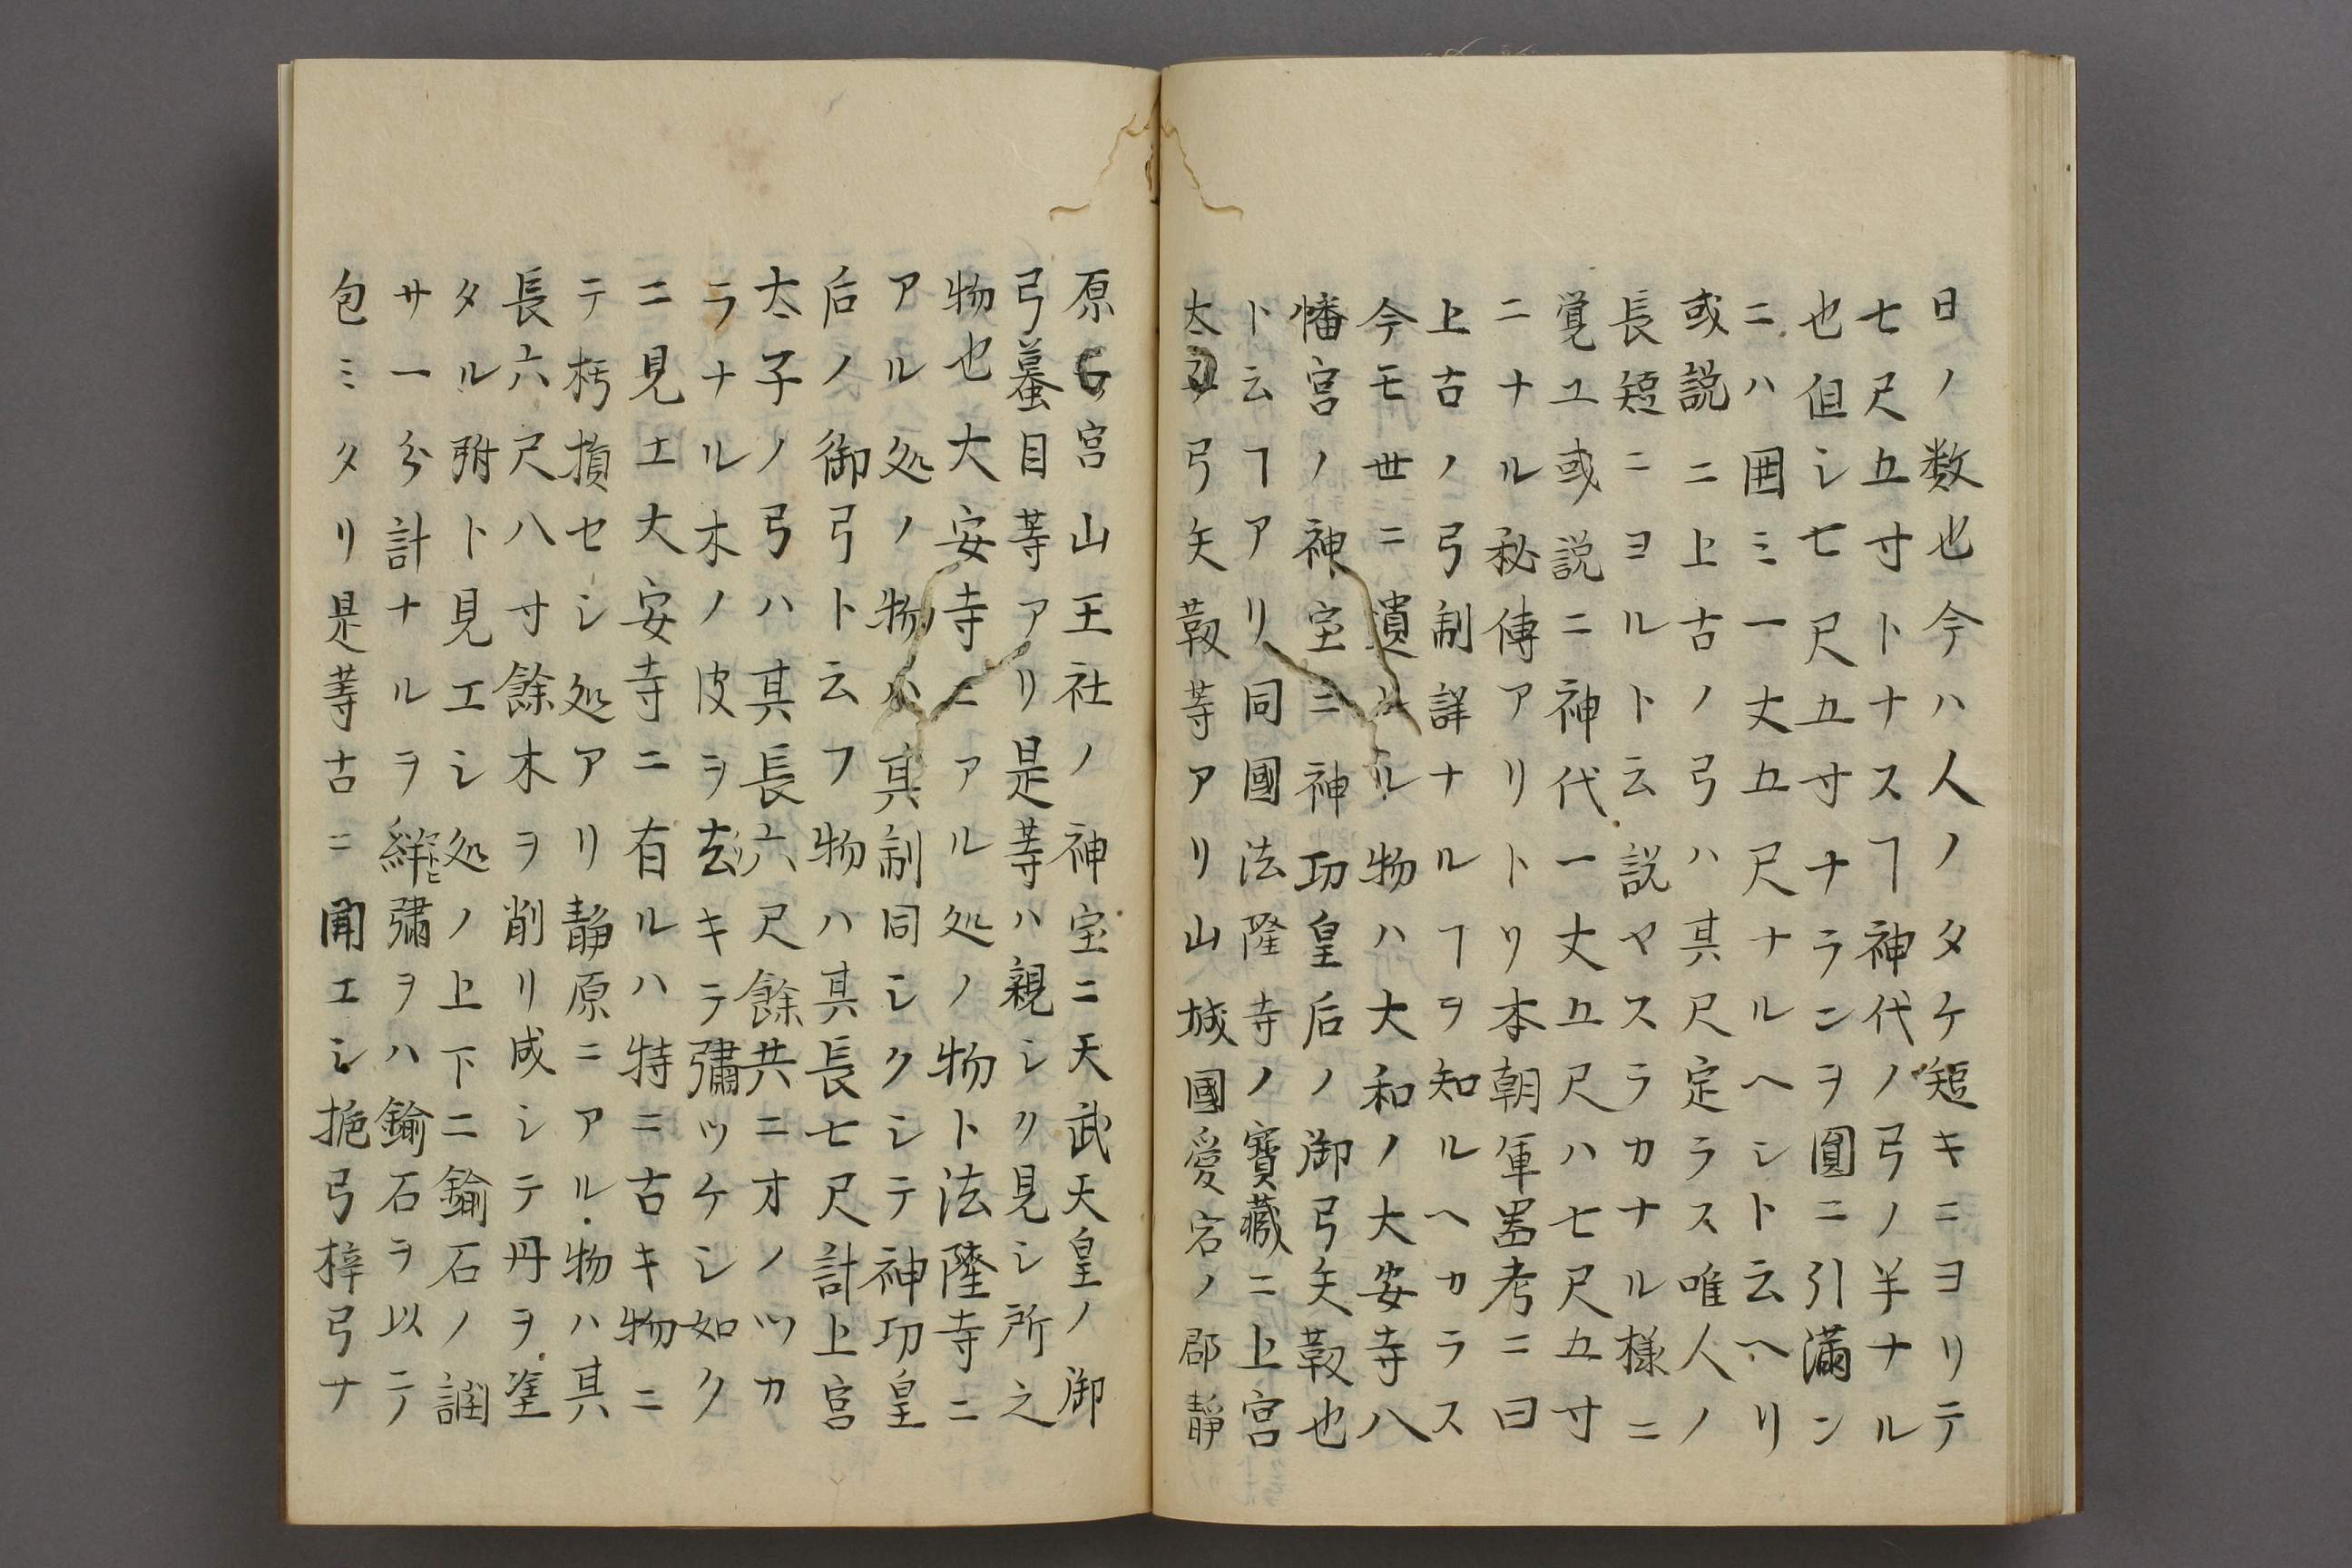 日ノ数也今ハ人ノタケ短キニヨリテ
七尺五寸トナスヿ神代ノ弓ノ半ナル
也但シ七尺五寸ナランヲ圓ニ引滿ン
ニハ囲ミ一丈五尺ナルヘシト云ヘリ
或説ニ上古ノ弓ハ其尺定ラス唯人ノ
長短ニヨルト云説ヤスラカナル様ニ
覚ユ或説ニ神代一丈五尺ハ七尺五寸
ニナル秘傳アリトリ本朝軍器考ニ曰
上古ノ弓制詳ナルヿヲ知ルヘカラス
今モ世ニ遺レル物ハ大和ノ大安寺八
幡宮ノ神宝ニ神功皇后ノ御弓矢靫也
ト云ヿアリ同國法隆寺ノ寳藏ニ上宮
太子弓矢靫等アリ山城國愛宕ノ郡靜
原宮山王社ノ神宝ニ天武天皇ノ御
弓蟇目等アリ是等ハ親シク見シ所之
物也大安寺ニアル処ノ物ト法隆寺ニ
アル処ノ物ハ其制同シクシテ神功皇
后ノ御弓ト云フ物ハ其長七尺計上宮
太子ノ弓ハ其長六尺餘共ニオノツカ
ラナル木ノ皮ヲ去リキテ彇ツケシ如ク
ニ見エ大安寺ニ有ルハ特ニ古キ物ニ
テ朽損セシ処アリ靜原ニアル物ハ其
長六尺八寸餘木ヲ削リ成シテ丹ヲ塗
タル弣ト見エシ処ノ上下ニ鍮石ノ
サ一分計ナルヲ彇ヲハ鍮石ヲ以テ
包ミタリ是等古ニ聞エシ弓梓弓ナ